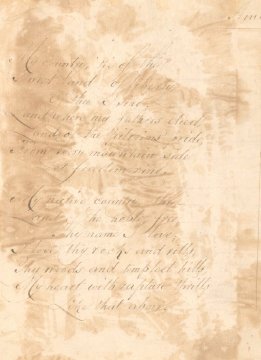 My country, 'tis of thee
Sweet land of liberty
Of thee I sing
Land where my fathers died
Land of the pilgrims pride
From every mountain side
Let freedom ring
My native country thee
Land of the noble free
Thy name I love
I love thy rocks and rills
Thy woods and templed hills
My heart with rapture thrills
Like that above